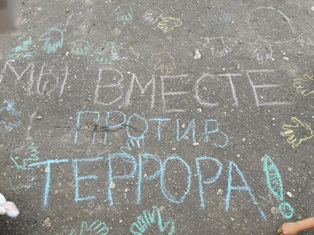 МЫ ВМЕСТЕ
ПРОТИВ
ТЕРРОРА!